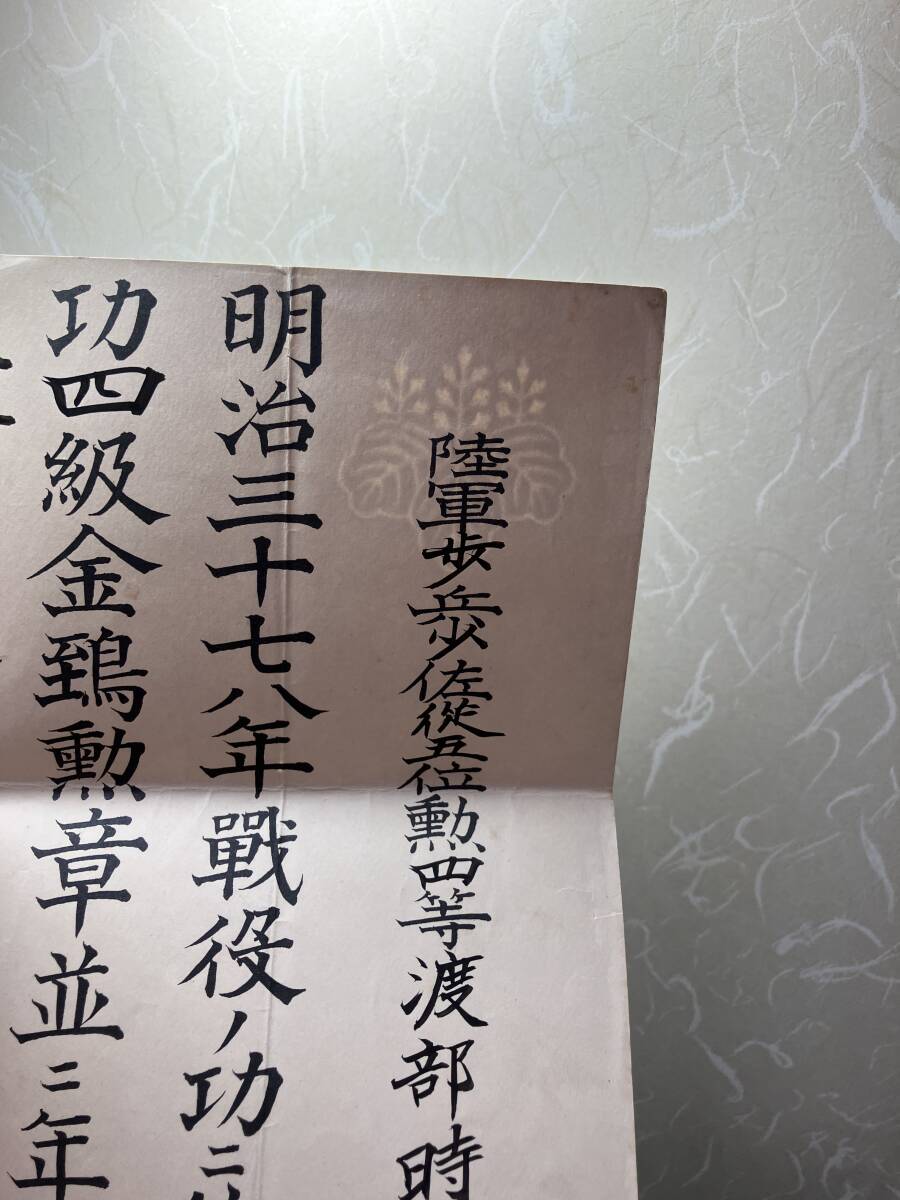 陸軍歩兵少佐從五位勲四等渡部時
明治三十七八年戰役ノ功ニ
功四級金鵄勲章並ニ年